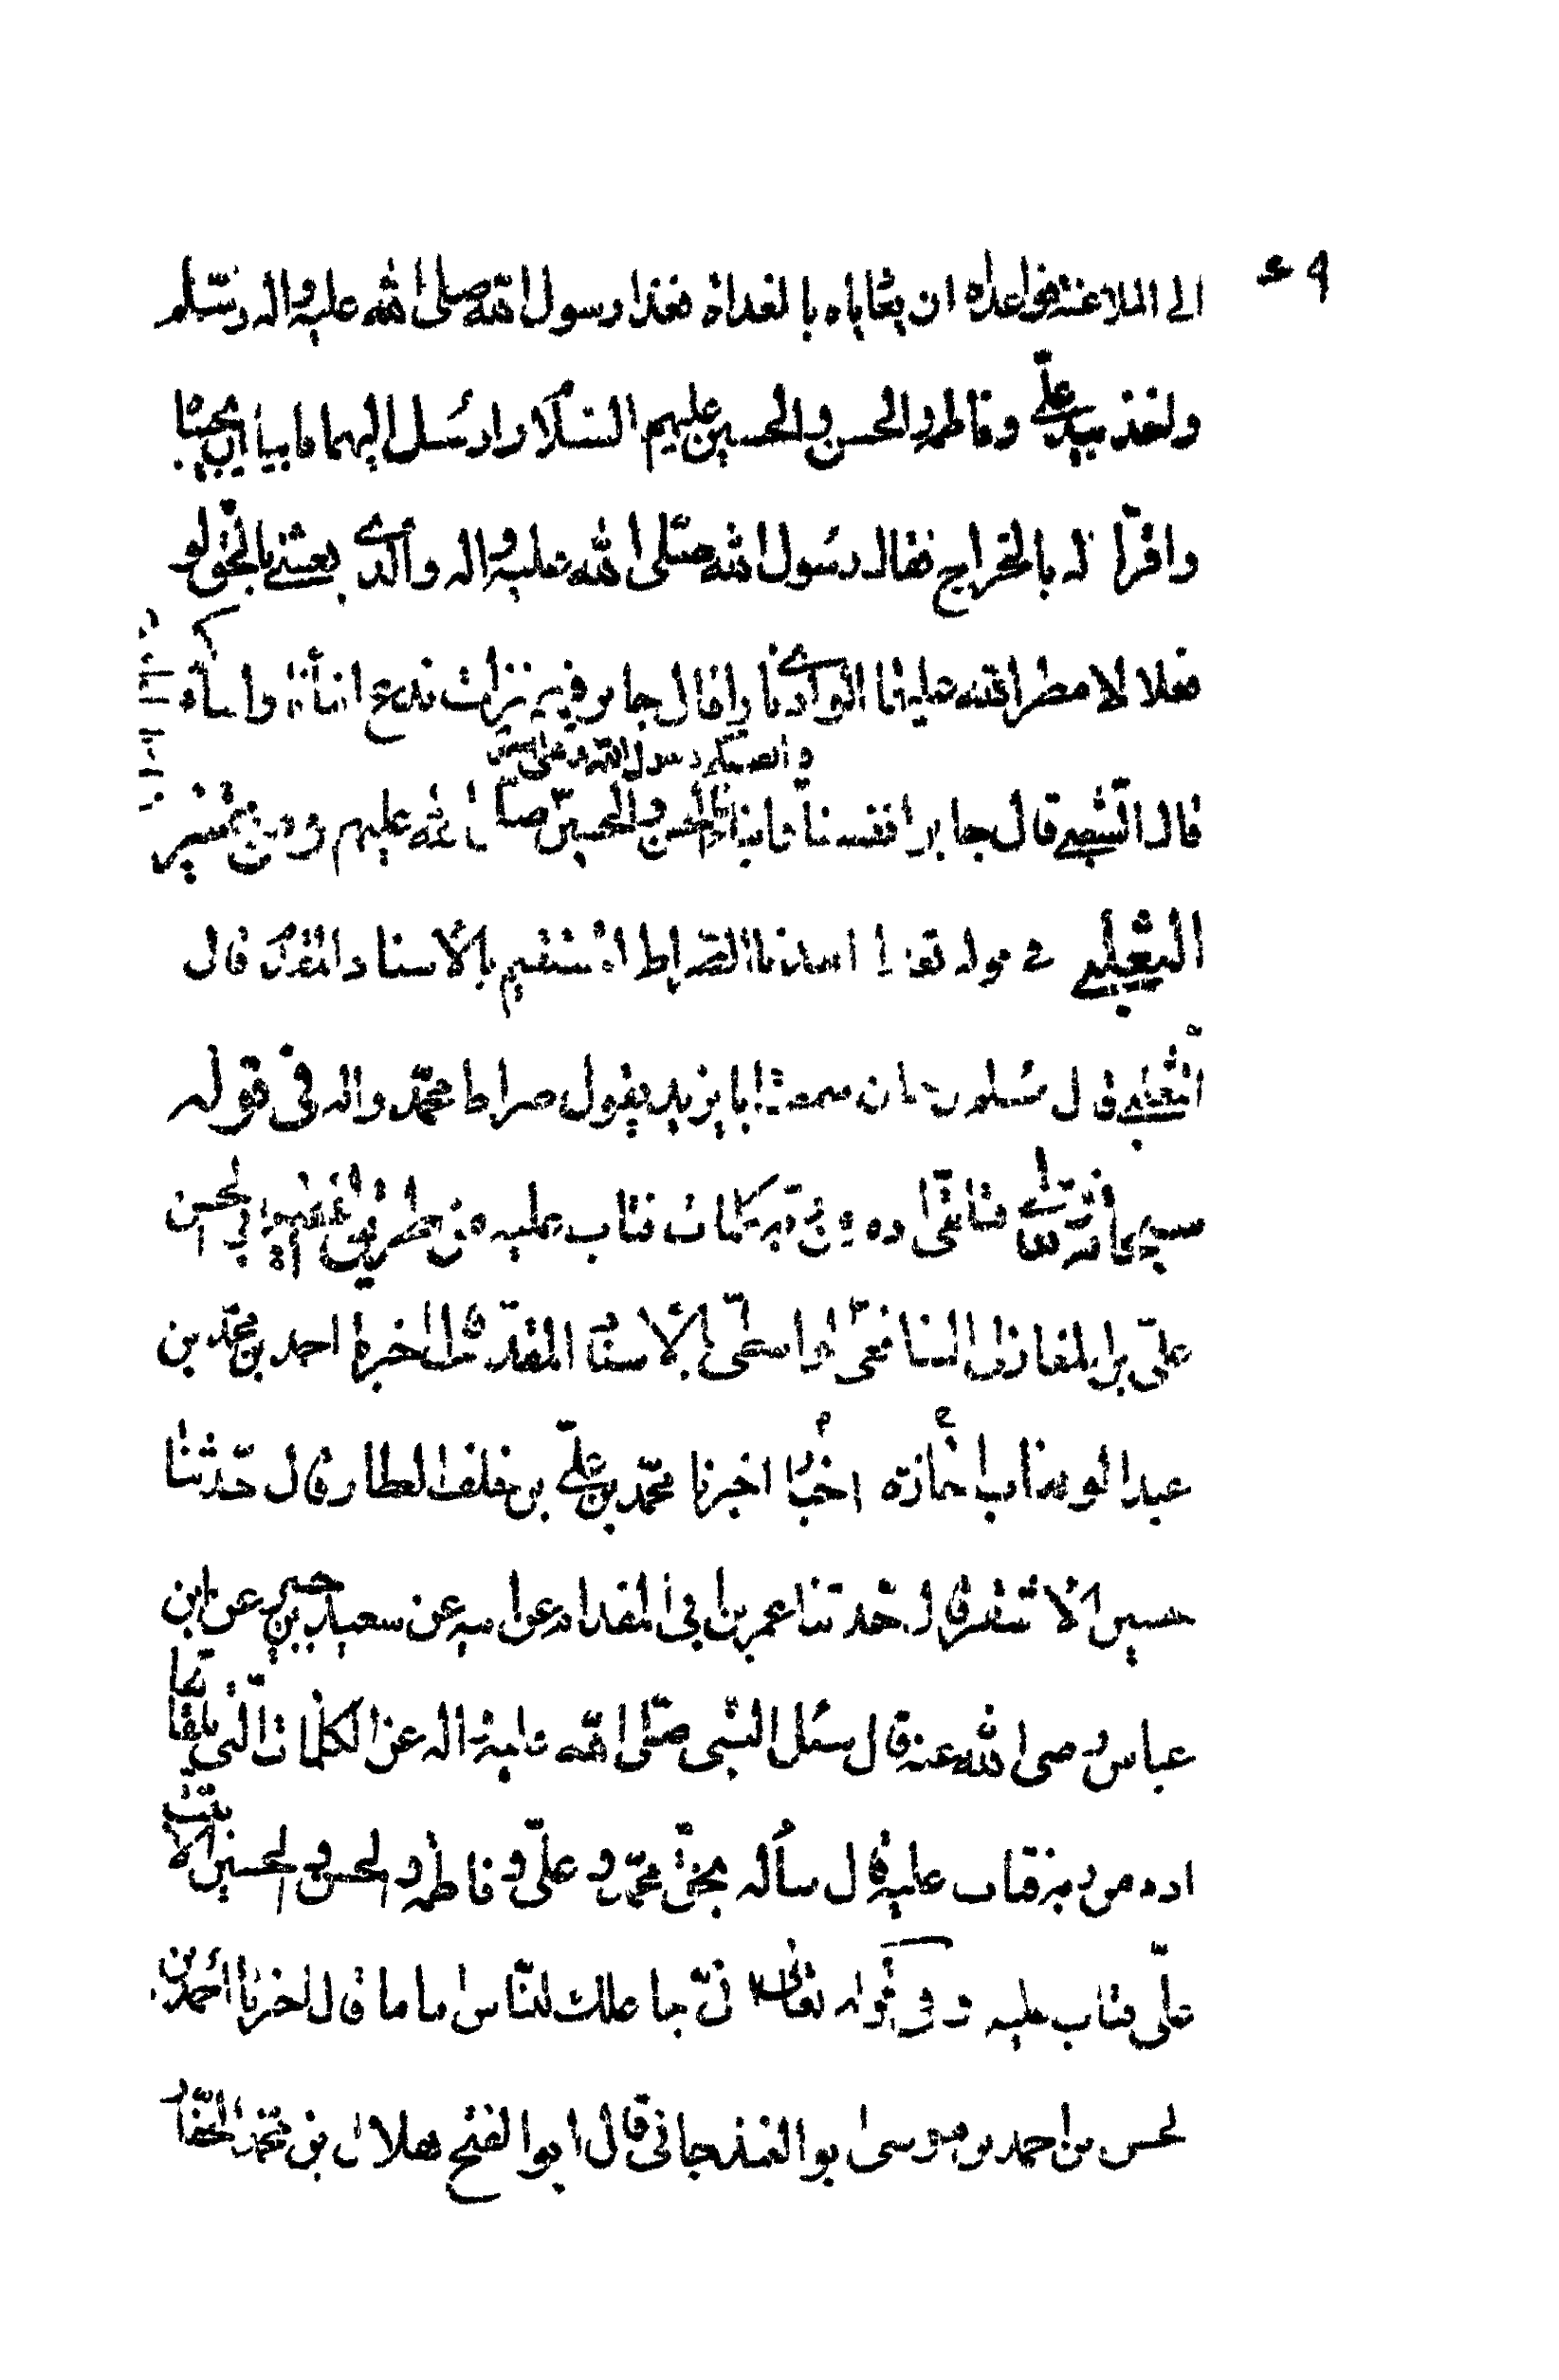 الى الملاعنة فواعداه ان يغاياه بالغداة فغدا رسول الله صلى الله عليه واله وسلم
واخذ بيد علي وفاطمة والحسن والحسين عليهم السلام وارسل اليهما فابيا ان يجيبا
واقرا له بالخراج فقال رسول الله صلى الله عليه واله والذي بعثني بالحق لو
فعلا لامطر الله عليهما الوادي نارا قال جابر وفيهم نزلت ندع ابنائنا وابناءكم
وانفسكم رسول الله وعلي
قال الشعبي قال جابر انفسنا وابناءنا الحسن والحسين صلى الله عليهم ومن تفسير
الثعلبي في قوله تعالى اهدنا الصراط المستقيم بالاسناد المقدم قال
الثعلبي قال مسلم بن حيان سمعت ابا يزيد يقول صراط محمد واله وفي قوله
سبحانه وتعالى فتلقى ادم من ربه كلمات فتاب عليه من طريق الفقيه ابي الحسن
علي بن المغازلي الشافعي الواسطي بالاسناد المقدم قال اخبرنا احمد بن محمد بن
عبد الوهاب اجازة اخبرنا محمد بن علي بن خلف العطار قال حدثنا
حسين الاشقر قال حدثنا عمر بن ابي المقدام عن ابيه عن سعيد بن جبير عن ابن
عباس رضى الله عنه قال سئل النبي صلى الله عليه واله عن الكلمات التي تلقاها
ادم من ربه فتاب عليه قال سأله بحق محمد وعلي وفاطمة والحسن والحسين الا تبت
علي فتاب عليه وفي قوله تعالى اني جاعلك للناس اماما قال اخبرنا احمد بن
لحسن بن احمد بن موسى ابو الغندجاني قال ابو الفتح هلال بن محمد الحفار